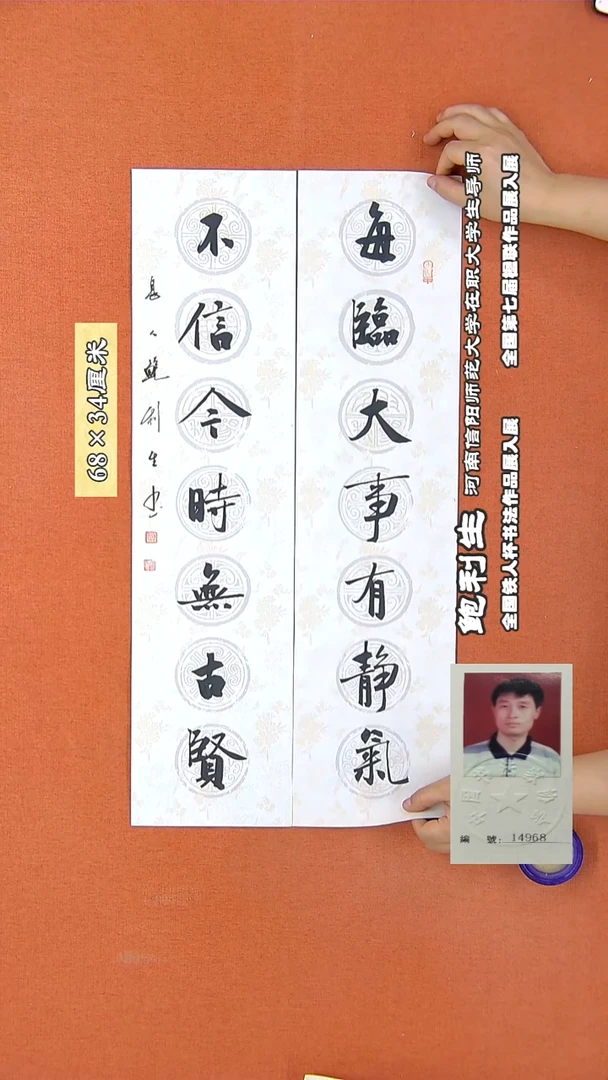 每臨大事有靜氣
不信今時無古賢
鮑利生
68×34厘米
鲍利生 河南信阳师范大学在职大学生导师
全国铁人杯书法作品展入展 全国第七届楹联作品展入展
編號：14968